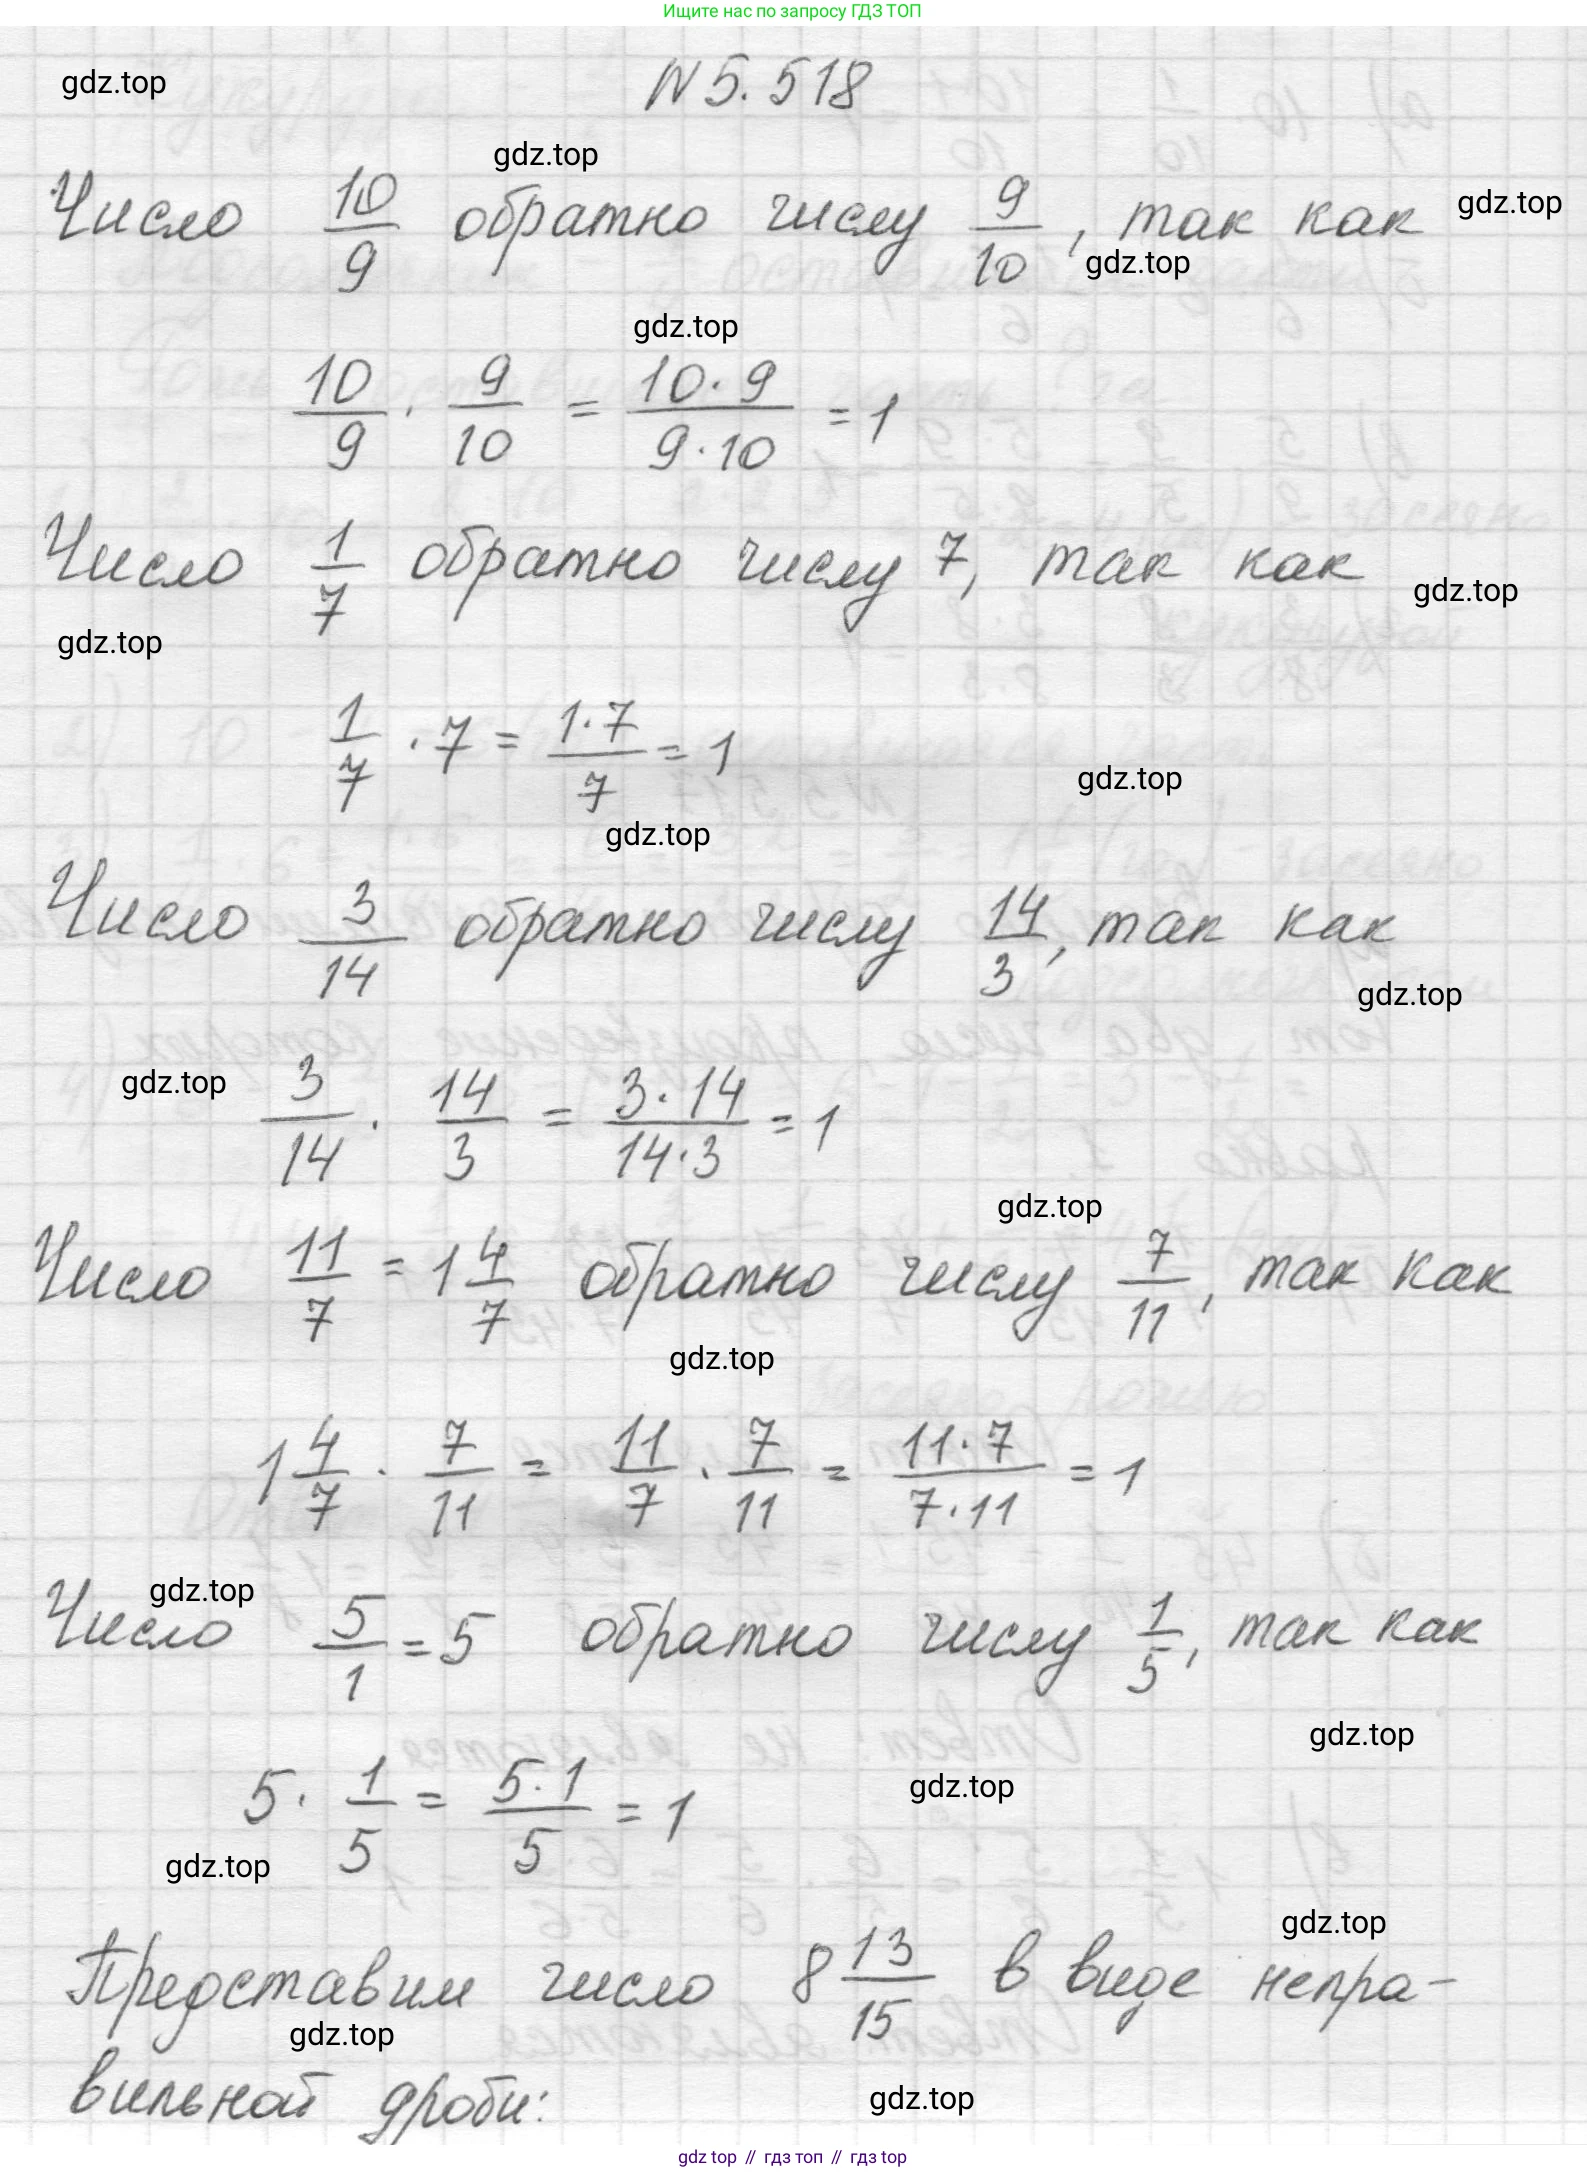 Ищите нас по запросу ГДЗ ТОП
N 5.518
gdz.top
gdz.top
Число 10/9 обратно числу 9/10, так как
gdz.top
gdz.top
gdz.top
10/9 · 9/10 = 10·9/9·10 = 1
Число 1/7 обратно числу 7, так как
gdz.top
gdz.top
1/7 · 7 = 1·7/7 = 1
gdz.top
gdz.top
Число 3/14 обратно числу 14/3, так как
gdz.top
gdz.top
3/14 · 14/3 = 3·14/14·3 = 1
gdz.top
Число 11/7 = 1 4/7 обратно числу 7/11, так как
gdz.top
1 4/7 · 7/11 = 11/7 · 7/11 = 11·7/7·11 = 1
gdz.top
Число 5/1 = 5 обратно числу 1/5, так как
gdz.top
gdz.top
5 · 1/5 = 5·1/5 = 1
gdz.top
gdz.top
Представим число 8 13/15 в виде непра-
gdz.top
вильной дроби:
gdz.top
gdz top // гдз топ // gdz top